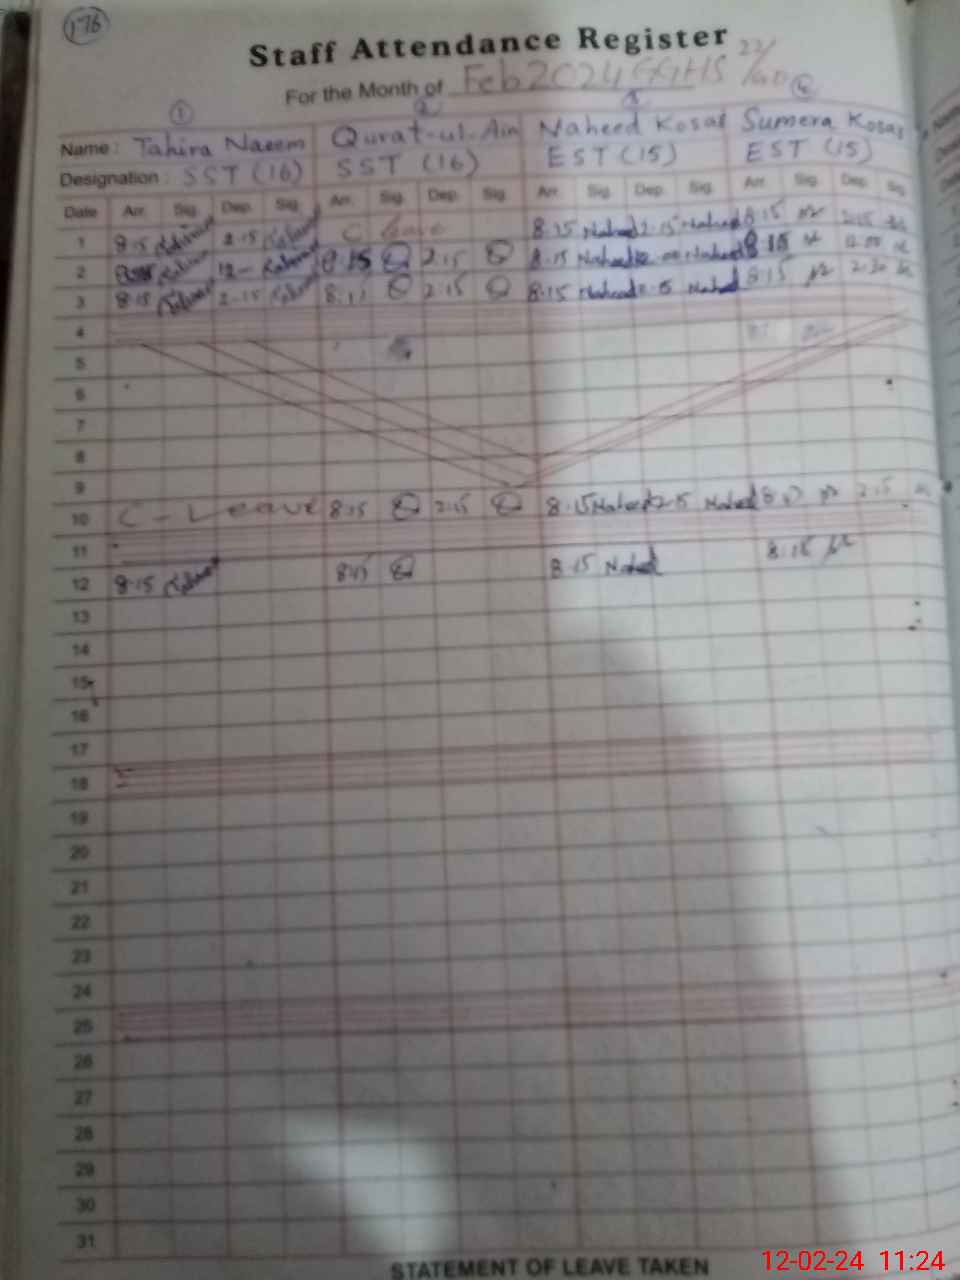 176
Staff Attendance Register
For the Month of Feb 2024 GGHS 22/
1 2 3 4
Name : Tahira Naeem Qurat-ul-Ain Naheed Kosar Sumera Kosar
Designation : SST (16) SST (16) EST (15) EST (15)
Date Arr. Sig. Dep. Sig. Arr. Sig. Dep. Sig. Arr. Sig. Dep. Sig. Arr. Sig. Dep. Sig.
1 8.15 2.15 C leave 8.15 Naheed 2.15 Naheed 8.15 2.15
2 12- 8.15 2.15 8.15 Naheed 12.00 Naheed 8.15 12.00
3 8.15 2.15 8.15 2.15 8.15 Naheed Naheed 8.15 2.30
4
5
6
7
8
9
10 C - Leave 8.15 2.15 8.15 Naheed 2.15 Naheed 2.15
11
12 8.15 8.15 8.15 Naheed 8.15
13
14
15
16
17
18
19
20
21
22
23
24
25
26
27
28
29
30
31
STATEMENT OF LEAVE TAKEN
12-02-24 11:24